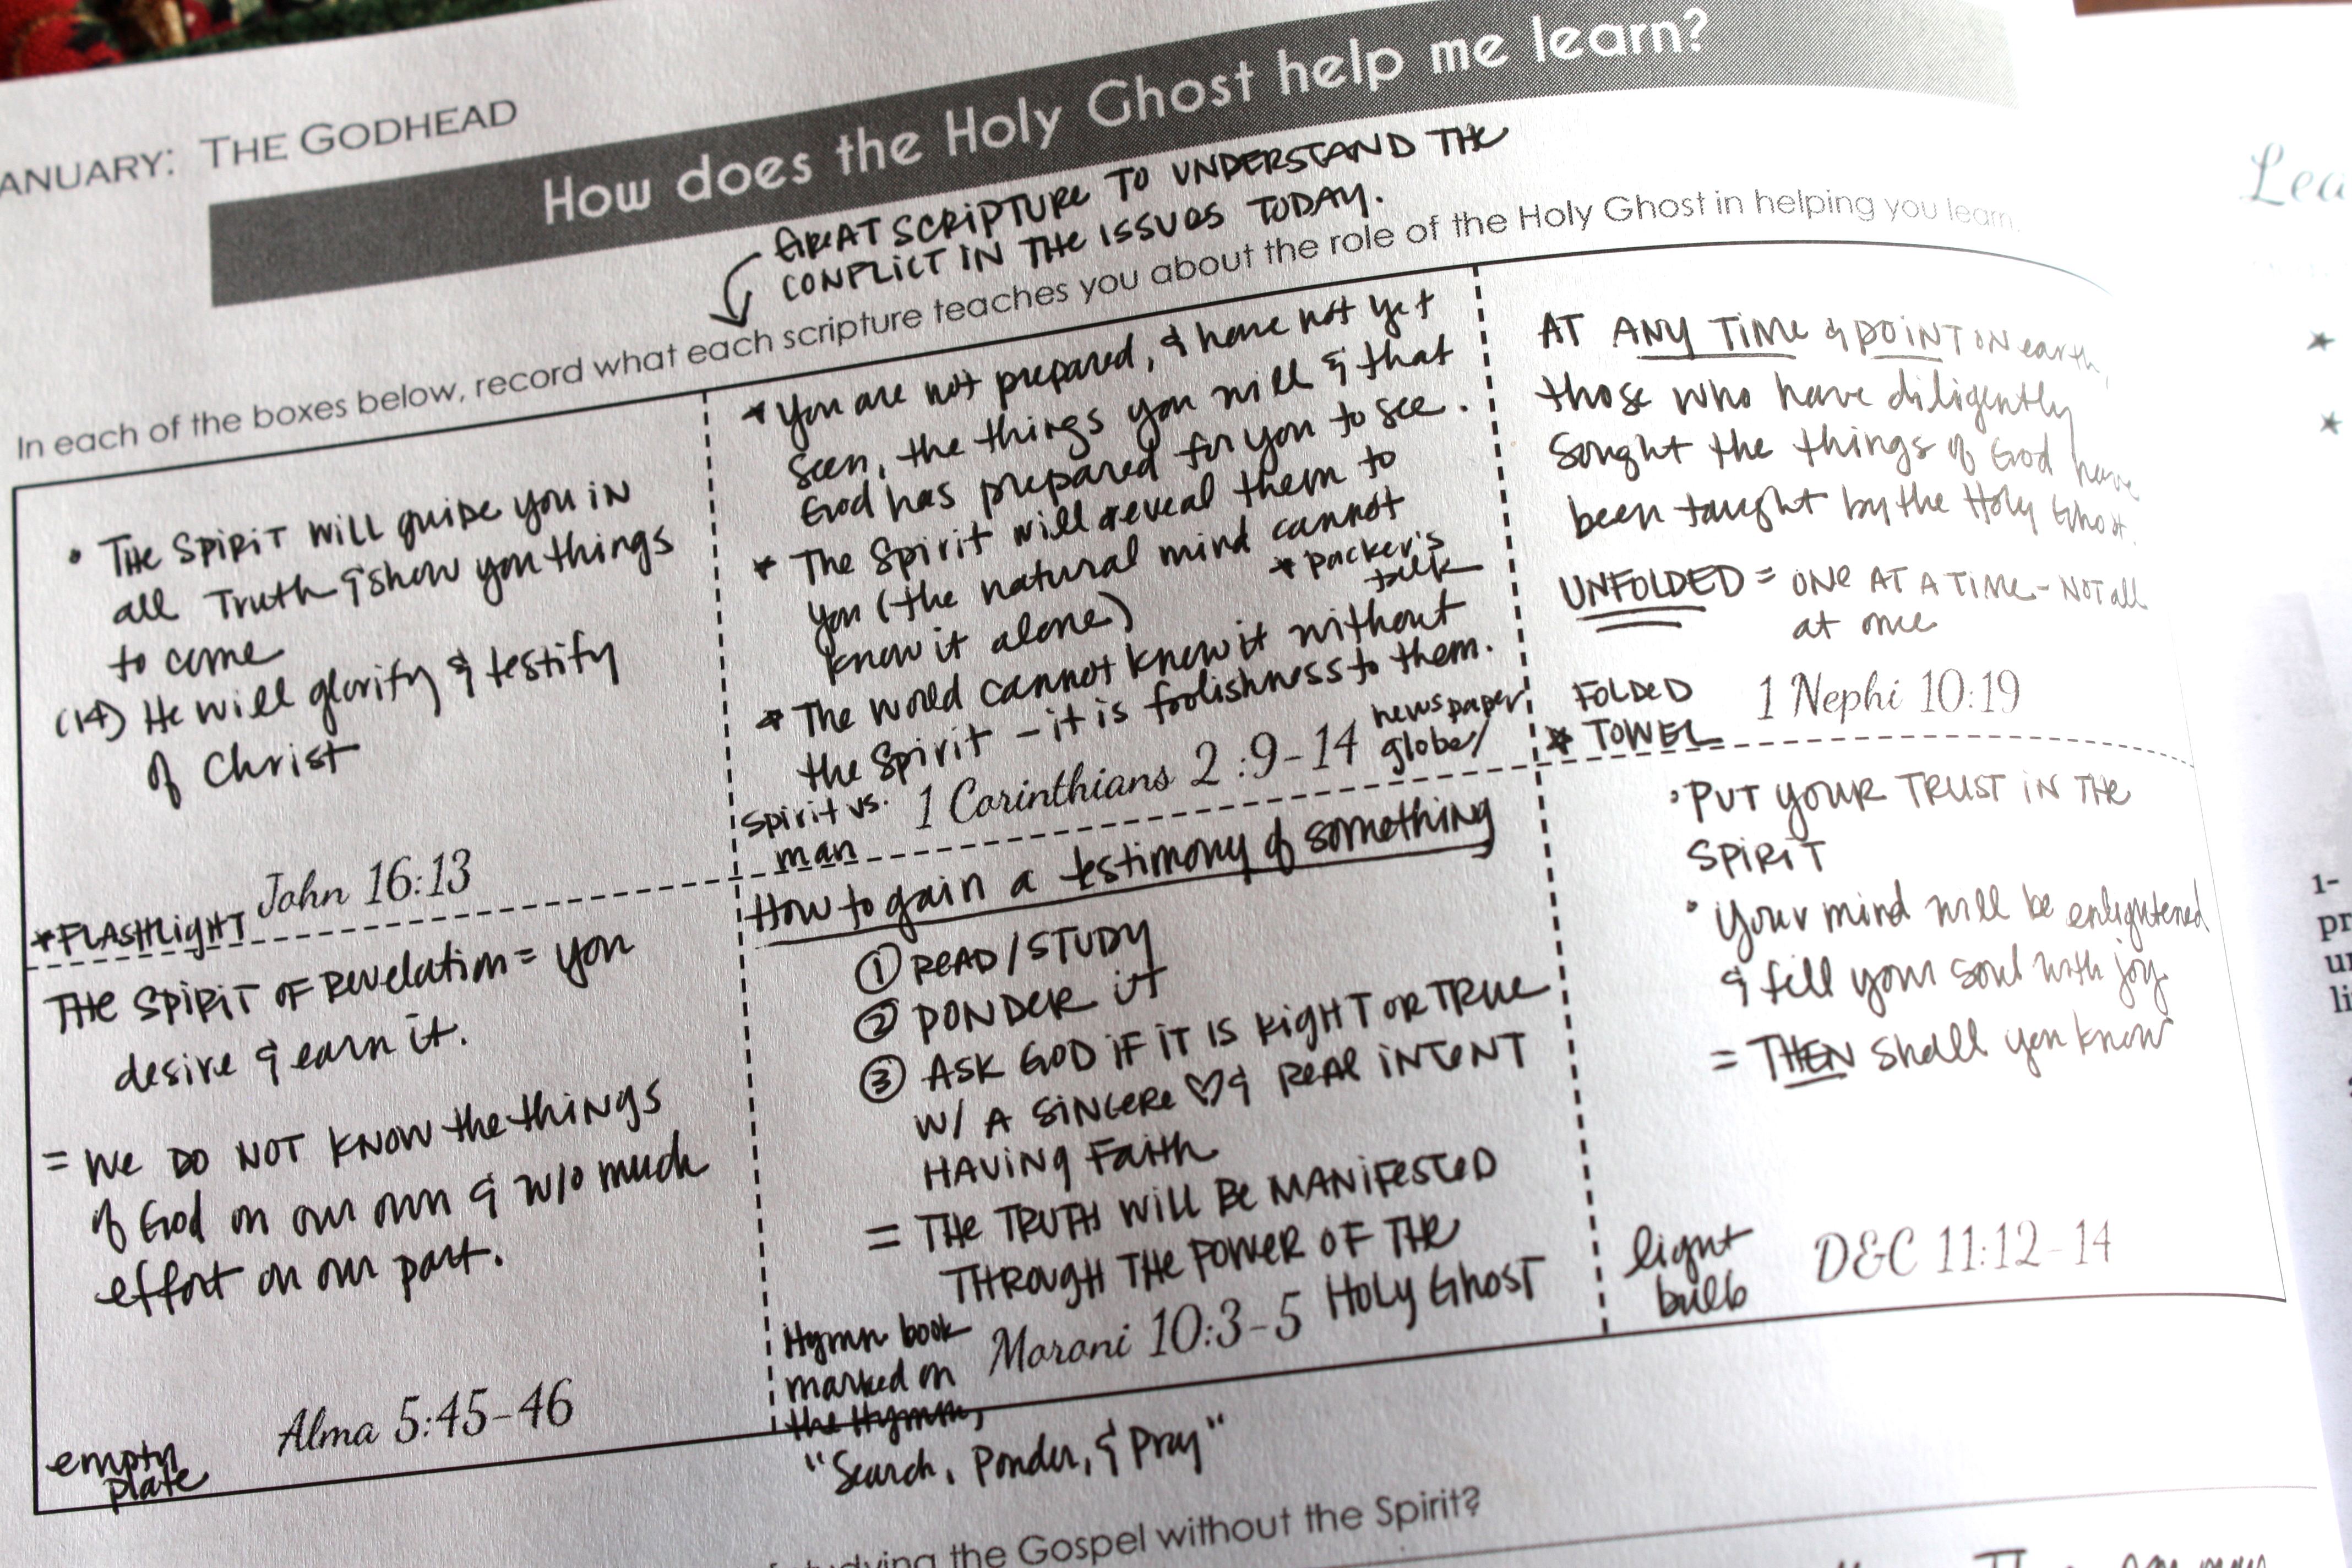 ANUARY: THE GODHEAD
How does the Holy Ghost help me learn?
GREAT SCRIPTURE TO UNDERSTAND THE
CONFLICT IN THE ISSUES TODAY.
In each of the boxes below, record what each scripture teaches you about the role of the Holy Ghost in helping you learn.
• THE SPIRIT WILL guide you IN
all Truth & show you things
to come
(14) He will glorify & testify
of Christ
*FLASHLIGHT
John 16:13
* You are not prepared, & have not yet
seen, the things you will & that
God has prepared for you to see.
* The Spirit will reveal them to
you (the natural mind cannot
know it alone)
* Packer's
talk
* The world cannot know it without
the Spirit - it is foolishness to them.
Spirit vs.
man
1 Corinthians 2 :9-14
newspaper
globe/
AT ANY TIME & POINT ON earth,
those who have diligently
sought the things of God have
been taught by the Holy Ghost.
UNFOLDED = ONE AT A TIME - NOT all
at once
FOLDED
* TOWEL
1 Nephi 10:19
THE SPIRIT OF Revelation = you
desire & earn it.
= We DO NOT KNOW the things
of God on our own & w/o much
effort on our part.
empty
plate
Alma 5:45-46
How to gain a testimony of something
① READ/STUDY
② PONDER it
③ ASK GOD IF IT IS RIGHT OR TRUE
W/ A SINCERE ♡ & REAL INTENT
HAVING FAITH
= THE TRUTH WILL BE MANIFESTED
THROUGH THE POWER OF THE
HOLY GHOST
Moroni 10:3-5
Hymn book
marked on
the Hymn,
"Search, Ponder, & Pray"
• PUT YOUR TRUST IN THE
SPIRIT
• Your mind will be enlightened
& fill your soul with joy
= THEN shall you know
light
bulb
D&C 11:12-14
studying the Gospel without the Spirit?
Lea
1-
pr
li